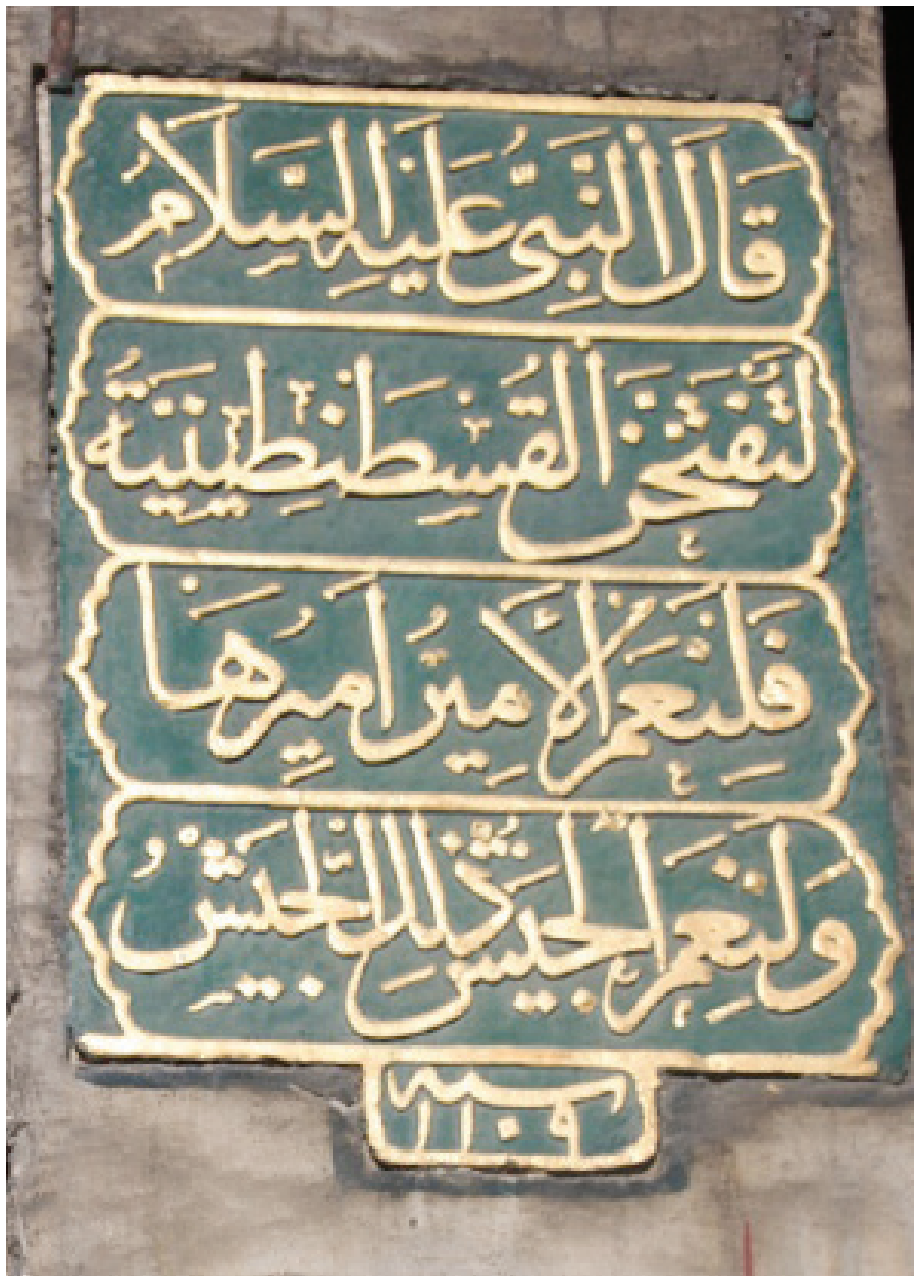 قال النبي عليه السلام
لتفتحن القسطنطينية
فلنعم الأمير اميرها
ولنعم الجيش ذلك الجيش
سنه
١١٠٩